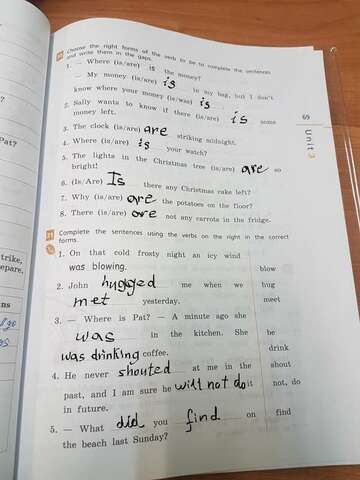 20 Choose the right forms of the verb to be to complete the sentences
and write them in the gaps.
1. — Where (is/are) is the money?
— My money (is/are) is in my bag, but I don't
know where your money (is/was) is
2. Sally wants to know if there (is/are) is some
money left.
3. The clock (is/are) are striking midnight.
4. Where (is/are) is your watch?
5. The lights in the Christmas tree (is/are) are so
bright!
6. (Is/Are) Is there any Christmas cake left?
7. Why (is/are) are the potatoes on the floor?
8. There (is/are) are not any carrots in the fridge.
21 Complete the sentences using the verbs on the right in the correct
forms.
1. On that cold frosty night an icy wind
was blowing. blow
2. John hugged me when we hug
met yesterday. meet
3. — Where is Pat? — A minute ago she
was in the kitchen. She be
was drinking coffee. drink
4. He never shouted at me in the shout
past, and I am sure he will not do it not, do
in future.
5. — What did you find on find
the beach last Sunday?
55 Unit 3
Pat?
trike,
epare,